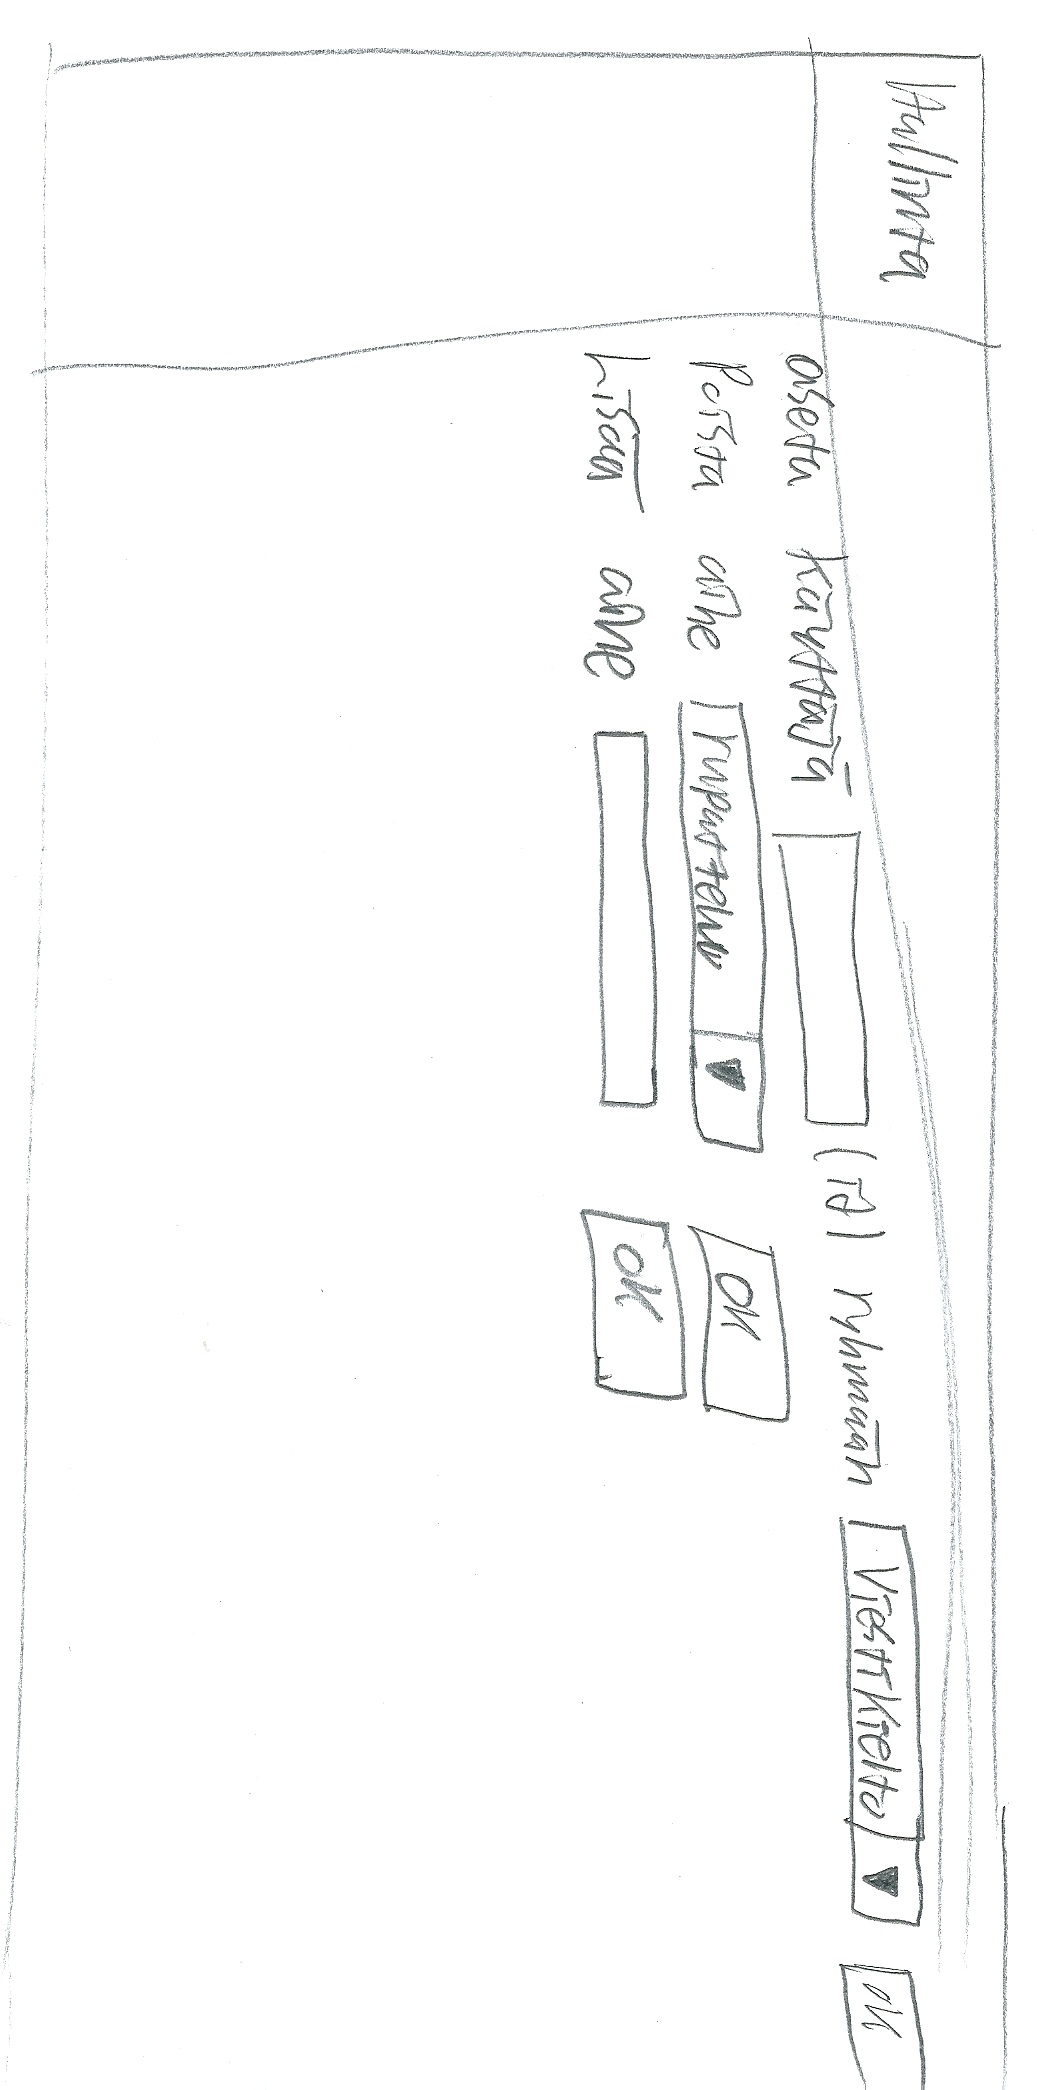 Hallinta
aseta käyttäjä (id) ryhmään Viestikielto ok
Poista aihe rupattelu OK
Lisää aihe OK